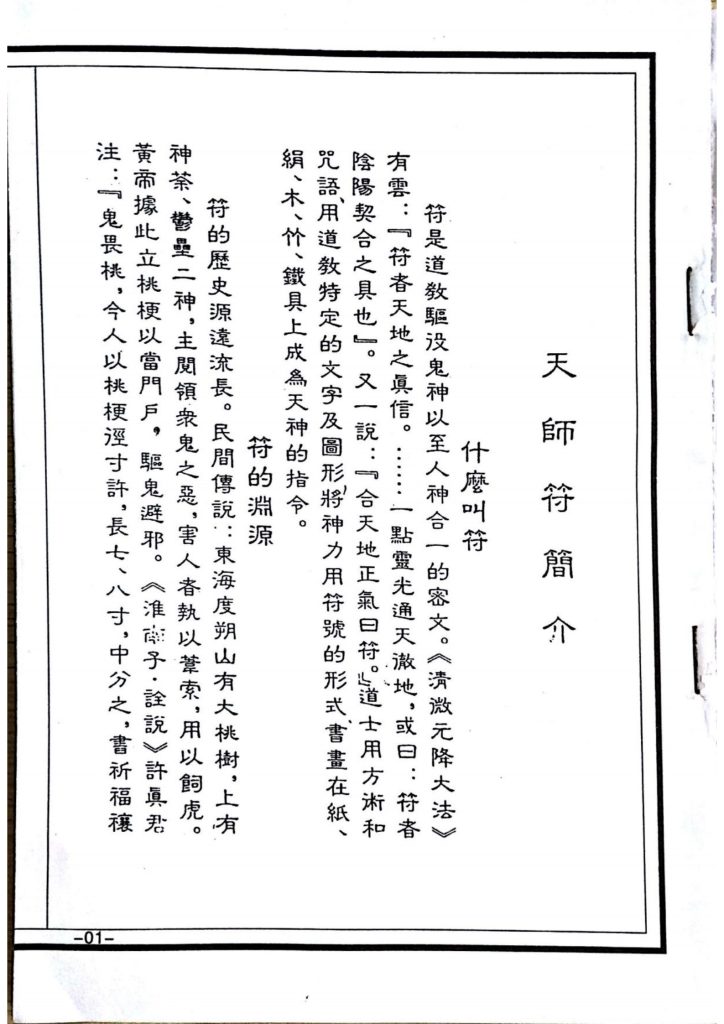 天師符簡介
什麼叫符
符是道教驅役鬼神以至人神合一的密文。《清微元降大法》
有雲：『符者天地之真信。……一點靈光通天徹地，或曰：符者
陰陽契合之具也』。又一説：『合天地正氣曰符。』道士用方術和
咒語、用道教特定的文字及圖形、將神力用符號的形式、書畫在紙、
絹、木、竹、鐵具上成為天神的指令。
符的淵源
符的歷史源遠流長。民間傳説：東海度朔山有大桃樹，上有
神荼、鬱壘二神，主閲領衆鬼之惡，害人者執以葦索，用以飼虎。
黃帝據此立桃梗以當門戶，驅鬼避邪。《淮南子·詮説》許真君
注：『鬼畏桃，今人以桃梗徑寸許，長七、八寸，中分之，書祈福禳
-01-